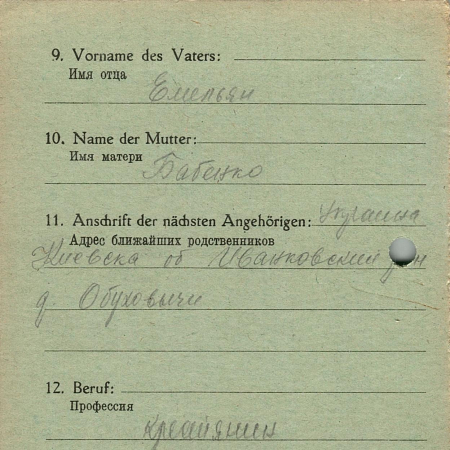 9. Vorname des Vaters:
Имя отца
Емельян
10. Name der Mutter:
Имя матери
Бабенко
11. Anschrift der nächsten Angehörigen: Украина
Адрес ближайших родственников
Киевска об Иванковский
д. Обуховычи
12. Beruf:
Профессия